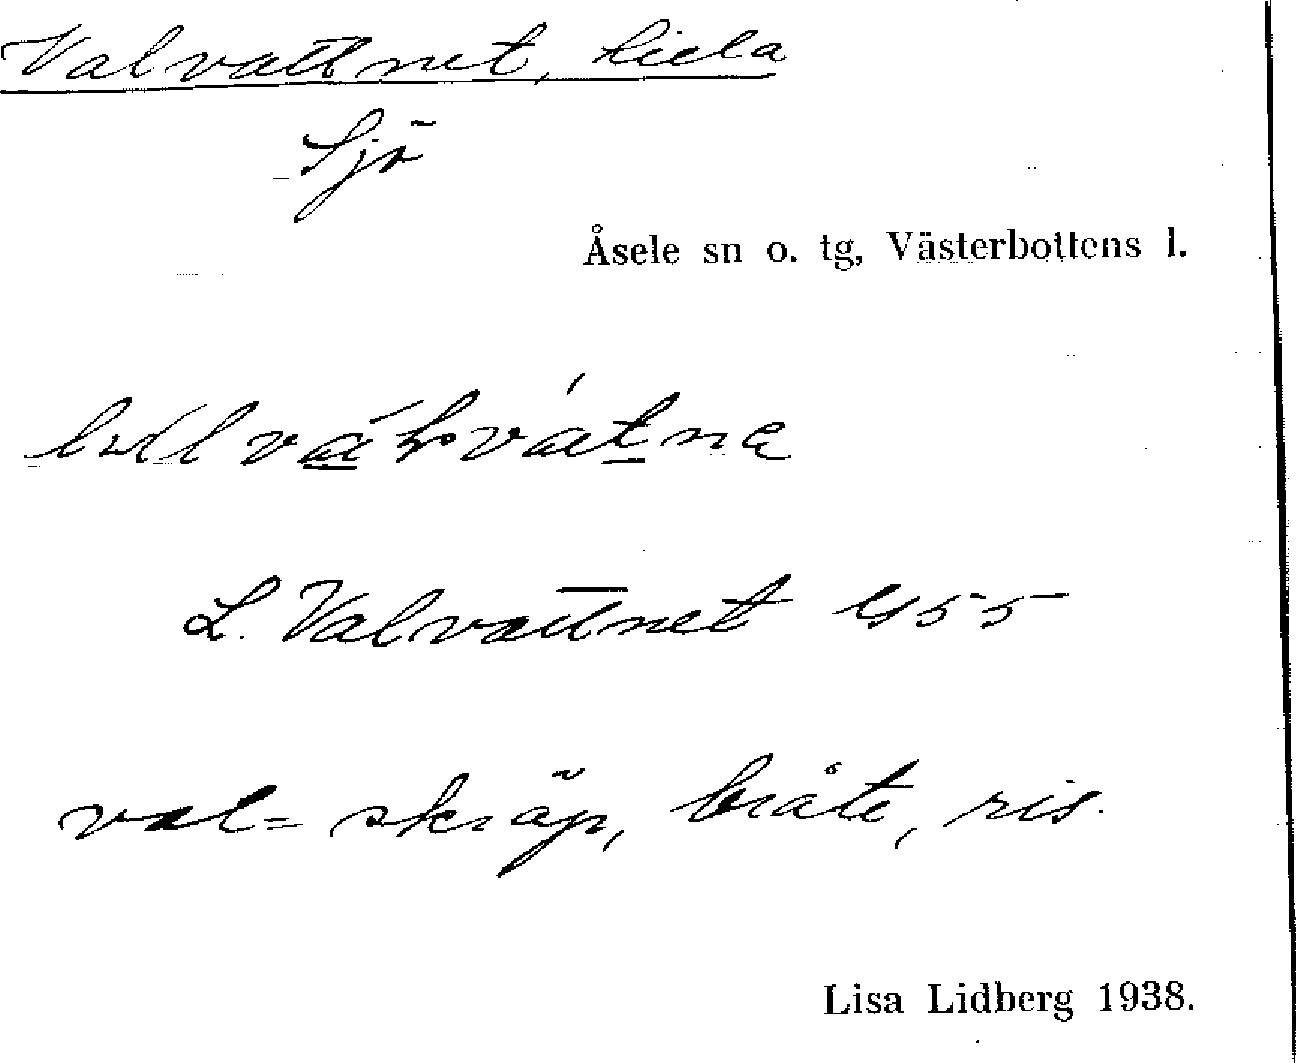 Valvattnet, Lilla
Sjö
Åsele sn o. tg, Västerbottens l.
L. Valvattnet 455
val = skräp, bråte, ris.
Lisa Lidberg 1938.